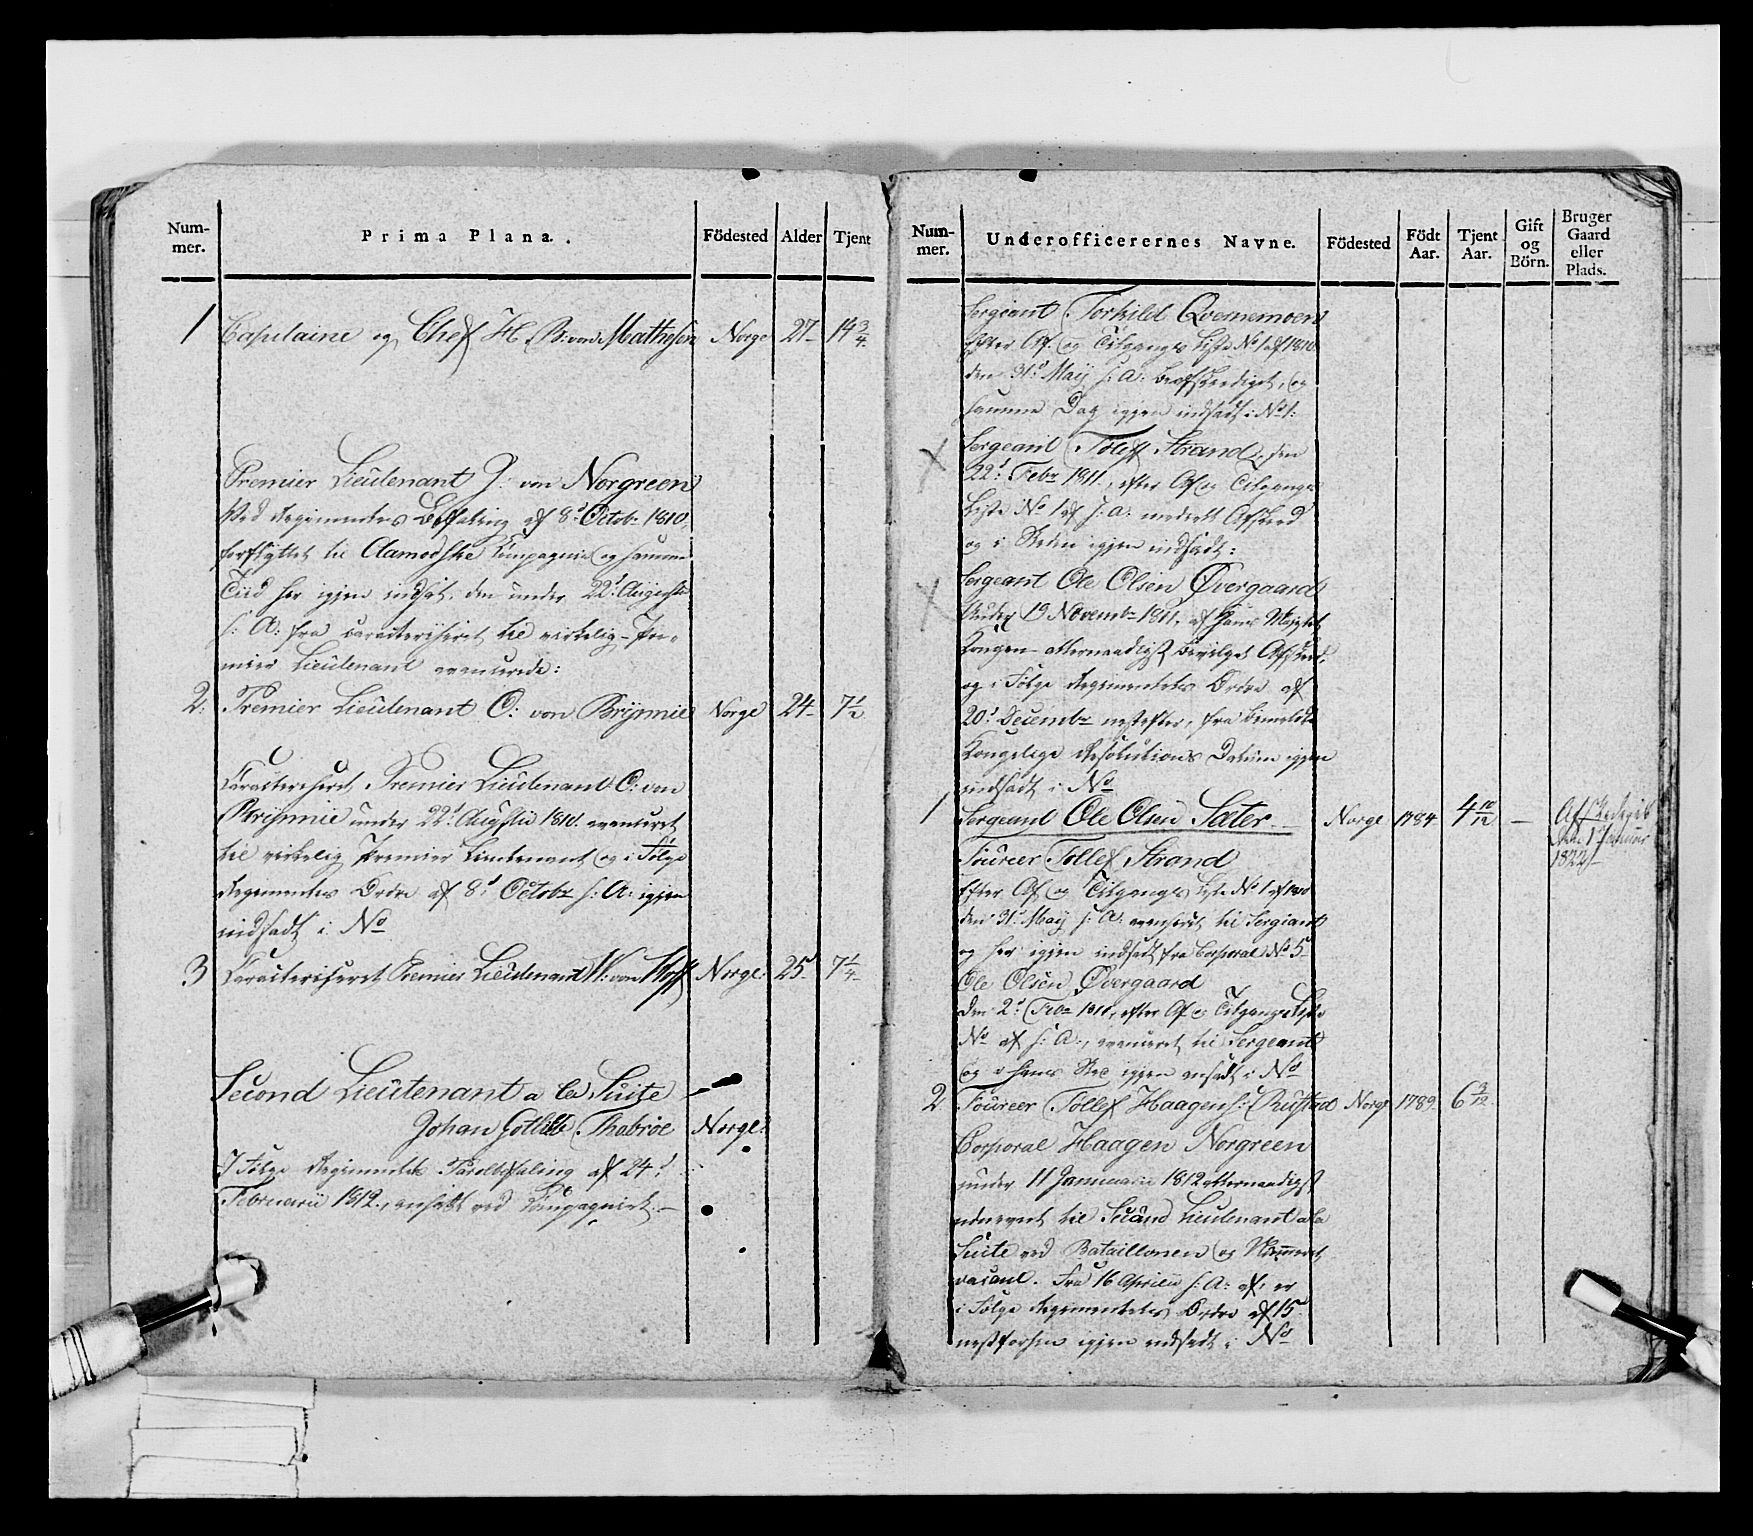 Num-
mer.
Prima Plana.
Födested
Alder
Tjent
1 Capitaine og Chef H. B: von Mathesen Norge 27- 14 3/4.
Premier Lieutenant J: von Norgreen
Ved Regimentets Befaling af 8d Octob: 1810,
forflyttet til Aamodske Compagnie og samme
Tiid her igjen indsat, den under 22d Augusti
s: A: fra caracteriseret til virkelig Pre-
mier Lieutenant avancerede:
2. Premier Lieutenant O: von Brynnie Norge 24- 7 1/2
Caracteriseret Premier Lieutenant O: von
Brynnie under 22d Augustii 1810. avanceret
til virkelig Premier Lieutenant og i Følge
Regimentets Ordre af 8d Octobr s: A: igjen
indsadt i No
3 Caracteriseret Premier Lieutenant W: von Norge. 25- 7 1/4-
Second Lieutenant a la Suite -
Johan Gotlieb Thobroe Norge.
I Følge Regimentets Parolbefaling af 24d
Februarii 1812., ansatt ved Compagniet.-
Num-
mer.
Underofficerernes Navne.
Födested
Födt
Aar.
Tjent
Aar.
Gift
og
Börn.
Bruger
Gaard
eller
Plads.
Sergeant Torkild Qvernemoen
Efter Af- og Tilgangs Liste No 1 af 1810.
den 31d Maij s: A: beafskediget, og
samme Dag igjen indsadt i No 1:
Sergeant Tolef Strand, den
22d Febr 1811, efter Af og Tilgangs
Liste No 1 af s: a: meddelt Afskeed
og i Steden igjen indsadt:
Sergeant Ole Olsen Øvergaard
Under 19 Novembr 1811, af Hans Majestet
Kongen allernaadigst bevilget Afskeed,
og i Følge Regimentets Ordre af
20d Decembr nestefter, fra bemeldte
Kongelige Resolutions Datum igjen
indsadt i No
1 Sergeant Ole Olsen Sæter Norge 1784 4 10/12 - Afskediget
den 1 Januar
1822
Foureer Tollef Strand
Efter Af og Tilgangs Liste No 1 af 1810
den 31d Maij s: A: avanceret til Sergiant
og her igjen indsadt fra Corporal No 5-
Ole Olsen Øvergaard
den 2d 1811, efter Af og Tilgangs Liste
No af s: A:, avanceret til Sergeant
og i hans Sted igjen ansadt i No
2 Foureer Tollef Haagens: Rustad Norge 1789 6 3/12.
Corporal Haagen Norgreen
under 11 Januarii 1812 allernaadigst
udnevnt til Second Lieutenant a la
Suite ved Bataillonen og Nummeret
vacant. Fra 16 Aprilii s: A: af, er
i Følge Regimentets Ordre af 15
nestforhen igjen indsadt i No